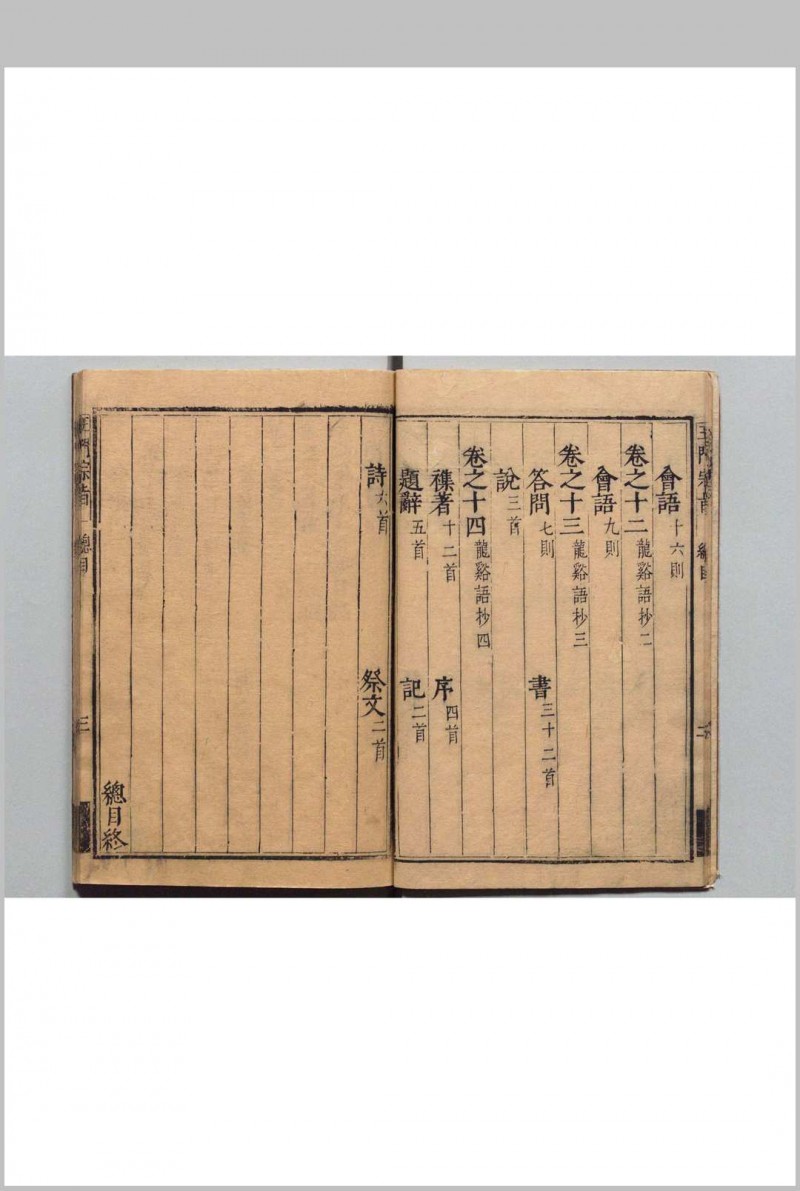 王門宗旨 總目 二
會語十六則
卷之十二龍谿語抄二
會語九則
卷之十三龍谿語抄三
答問七則 書三十二首
說三首
卷之十四龍谿語抄四
襍著十二首 序四首
題辭五首 記二首
詩六首 祭文二首
總目終
王門宗旨 總目 三